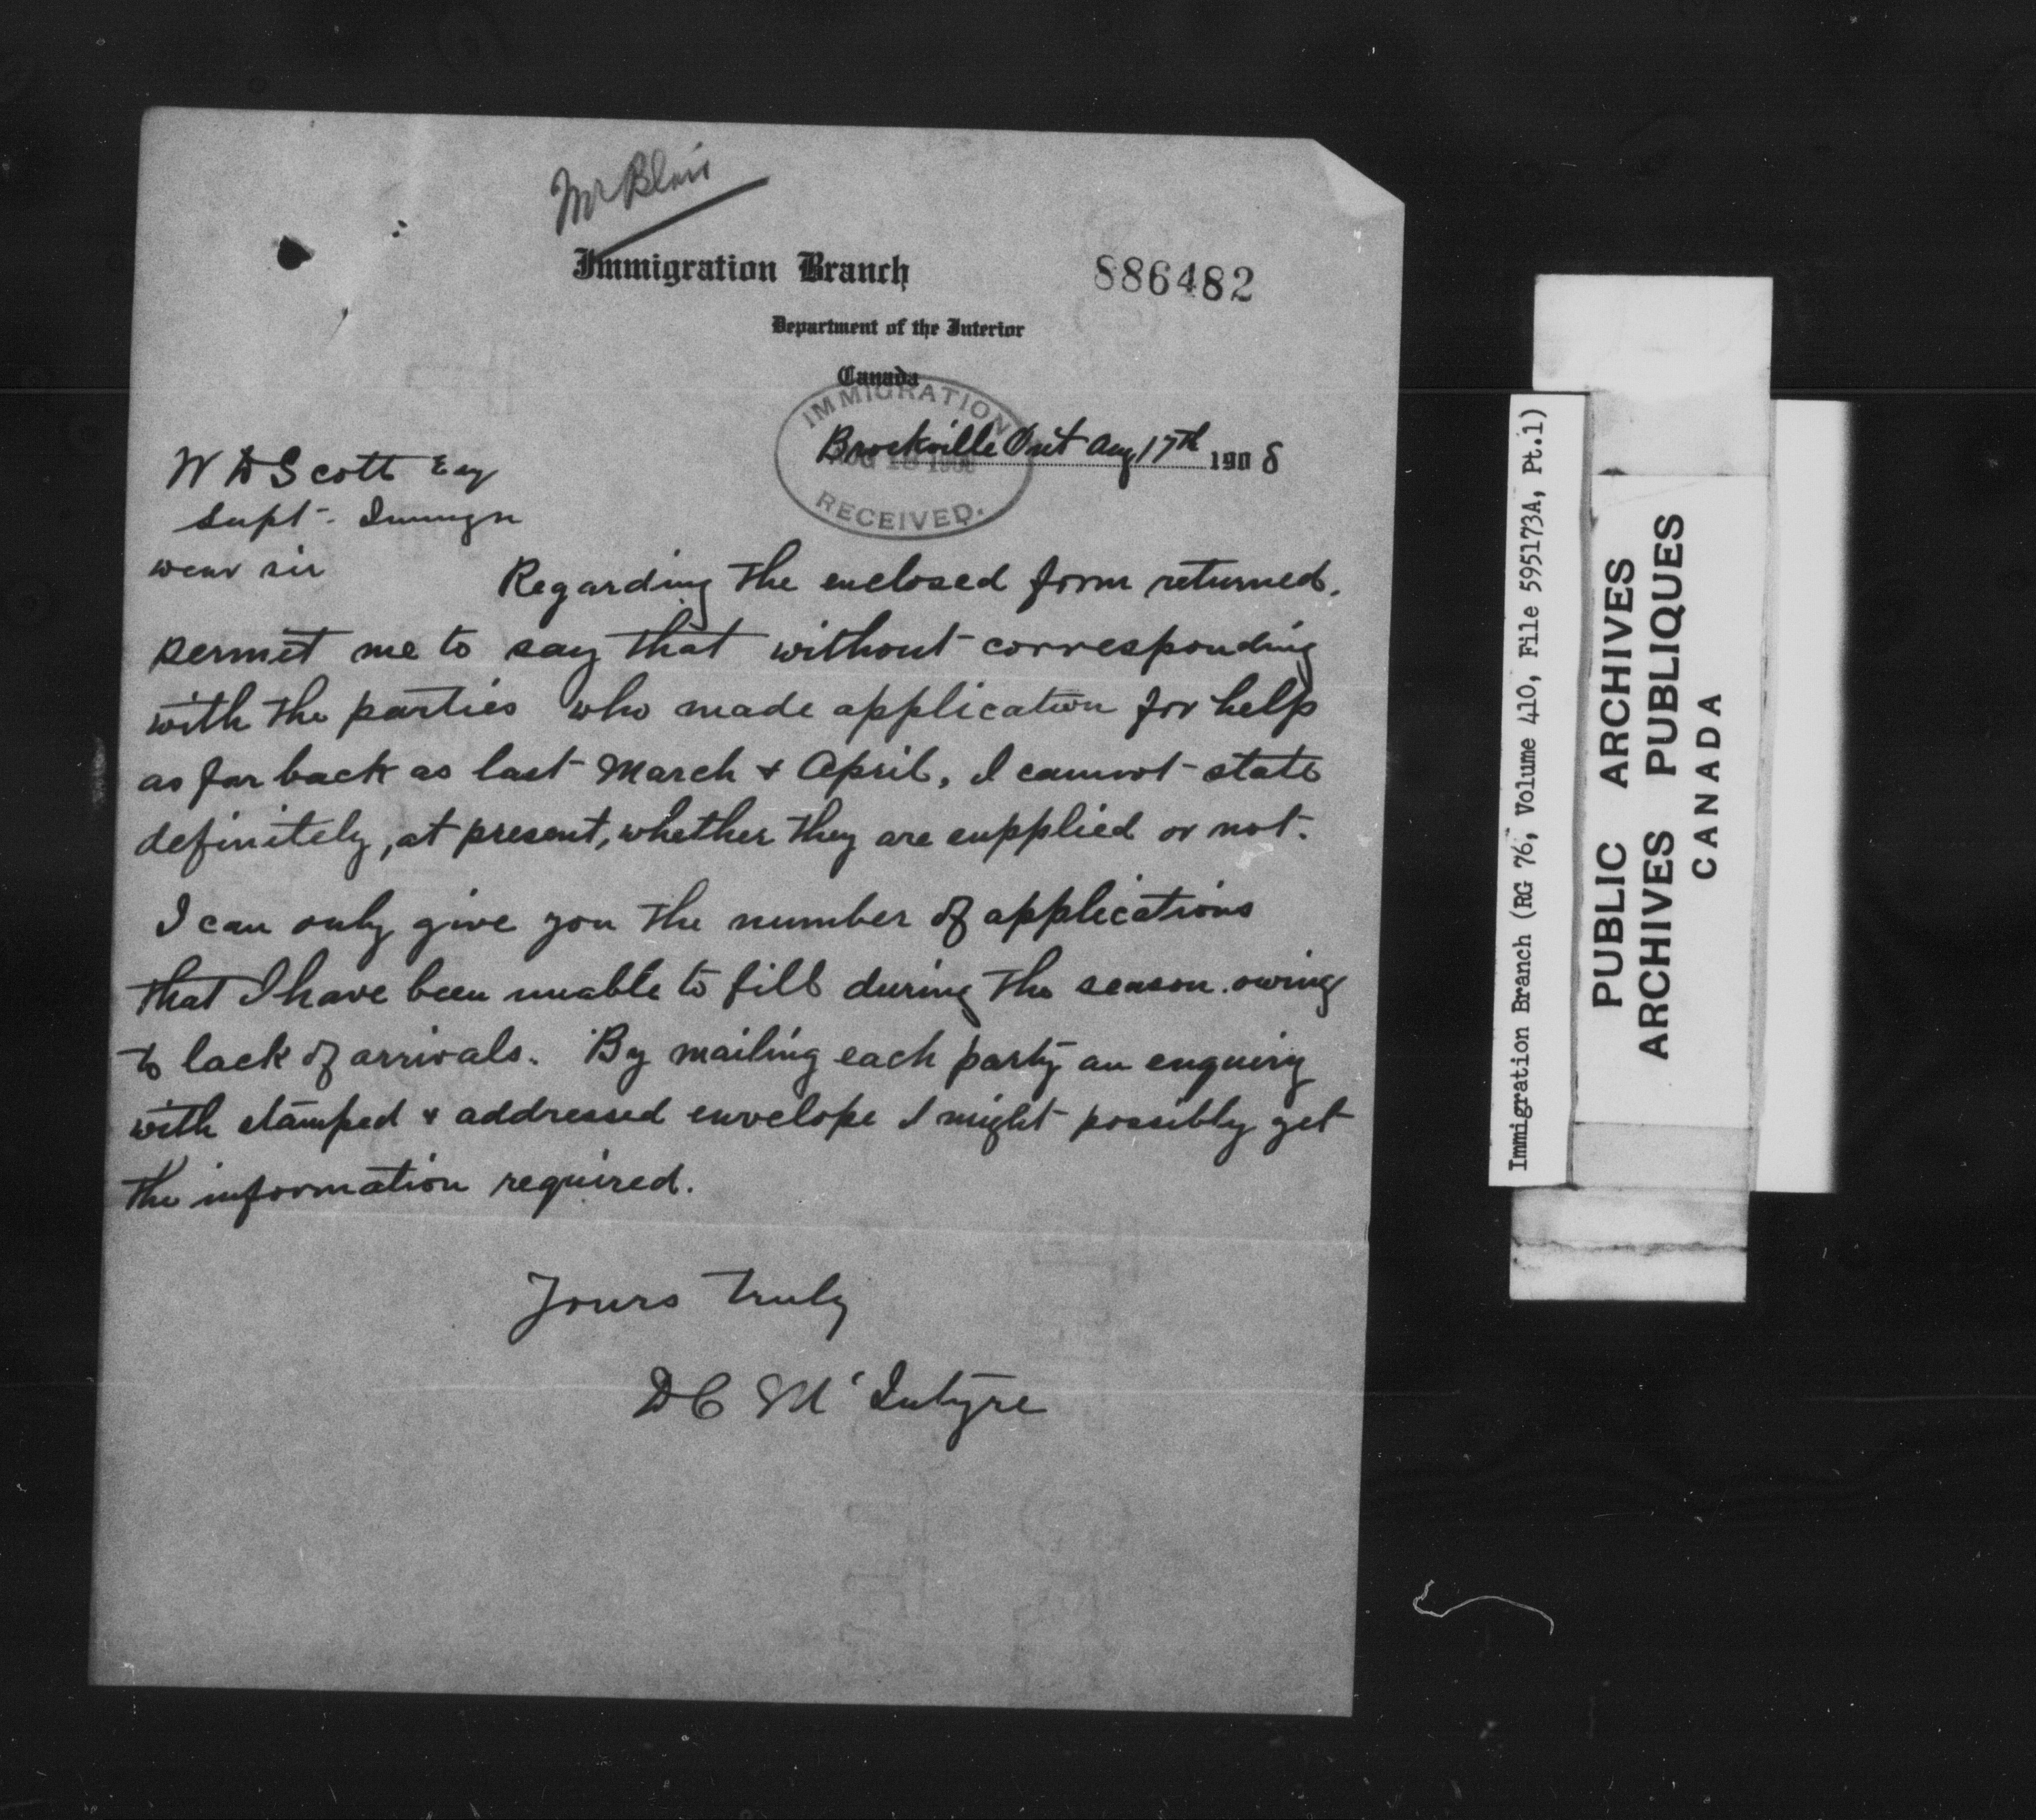 Mr Blair
Immigration Branch
886482
Department of the Interior
Canada
IMMIGRATION
AUG 18 1908
RECEIVED.
Brockville Ont Aug 17th 1908
W D Scott Esq
Supt. Immign
Dear sir
Regarding the enclosed form returned.
permit me to say that without corresponding
with the parties who made application for help
as far back as last March & April, I cannot state
definitely, at present, whether they are supplied or not.
I can only give you the number of applications
that I have been unable to fill during the season owing
to lack of arrivals. By mailing each party an enquiry
with stamped & addressed envelope I might possibly get
the information required.
Yours truly
D C McIntyre
Immigration Branch (RG 76, Volume 410, File 595173A, Pt.1)
PUBLIC ARCHIVES
ARCHIVES PUBLIQUES
CANADA